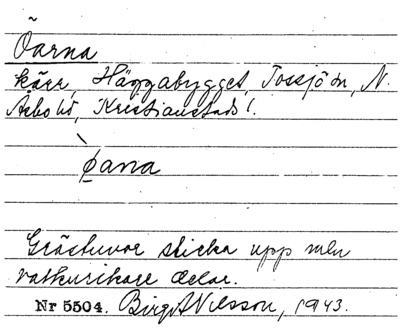 Öarna
kärr, Häggabygget, Tossjö sn, N.
Åsbo hd, Kristianstads l.
ǿana
Grästuvor sticka upp mellan
vattusikare delar.
Nr 5504. Birgit Nilsson, 1943.